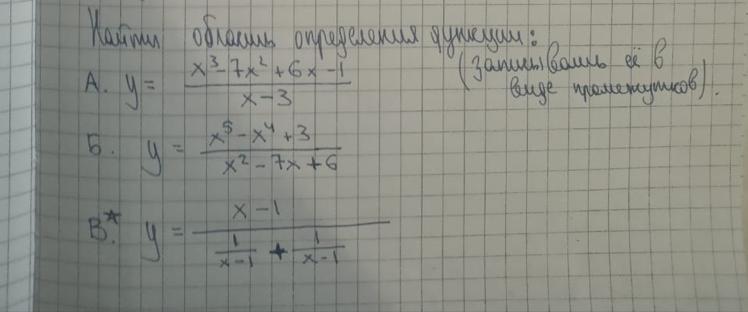 Найти область определения функции:
(Записывать её в
виде промежутков).
А. y = (x³-7x²+6x-1)/(x-3)
Б. y = (x⁵-x⁴+3)/(x²-7x+6)
В*. y = (x-1)/(1/(x-1) + 1/(x-1))